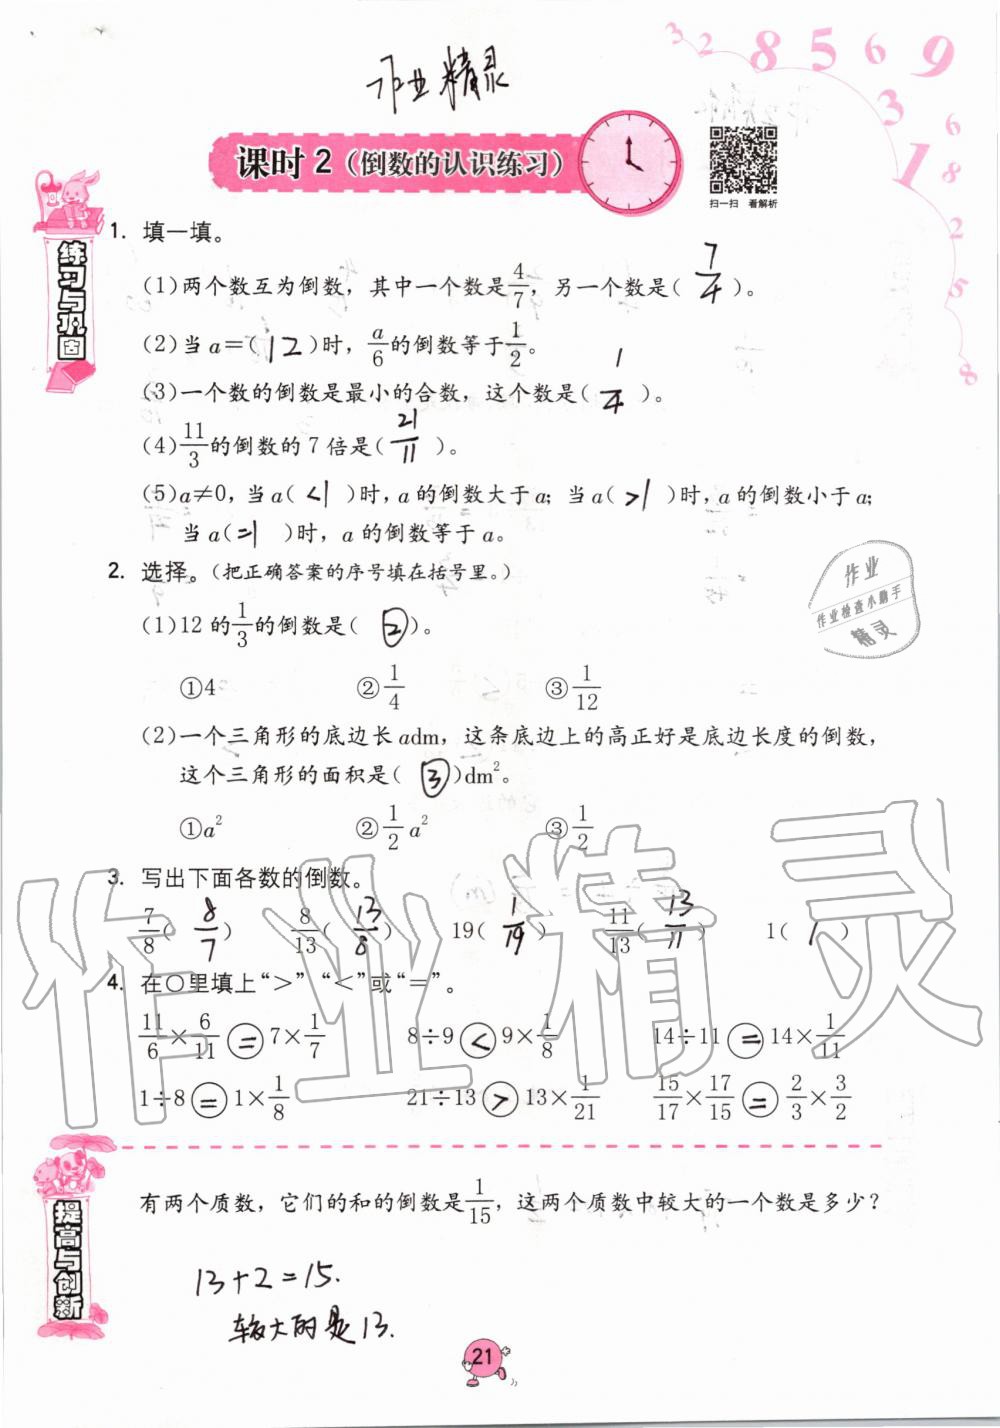 3 2 8 5 6 9 3 6 1 8 2 5 8
作业精灵
课时2（倒数的认识练习）
扫一扫 看解析
练习与巩固
1. 填一填。
(1)两个数互为倒数，其中一个数是4/7，另一个数是( 7/4 )。
(2)当a=( 12 )时，a/6的倒数等于1/2。
(3)一个数的倒数是最小的合数，这个数是( 1/4 )。
(4)11/3的倒数的7倍是( 21/11 )。
(5)a≠0，当a( <1 )时，a的倒数大于a；当a( >1 )时，a的倒数小于a；
当a( =1 )时，a的倒数等于a。
2. 选择。（把正确答案的序号填在括号里。）
(1)12的1/3的倒数是( ② )。
①4 ②1/4 ③1/12
(2)一个三角形的底边长adm，这条底边上的高正好是底边长度的倒数，
这个三角形的面积是( ③ )dm²。
①a² ②1/2 a² ③1/2
3. 写出下面各数的倒数。
7/8( 8/7 ) 8/13( 13/8 ) 19( 1/19 ) 11/13( 13/11 ) 1( 1 )
4. 在○里填上“>”“<”或“=”。
11/6×6/11 = 7×1/7 8÷9 < 9×1/8 14÷11 = 14×1/11
1÷8 = 1×1/8 21÷13 > 13×1/21 15/17×17/15 = 2/3×3/2
提高与创新
有两个质数，它们的和的倒数是1/15，这两个质数中较大的一个数是多少？
13+2=15.
较大的是13.
21
作业
作业检查小助手
精灵
作业精灵